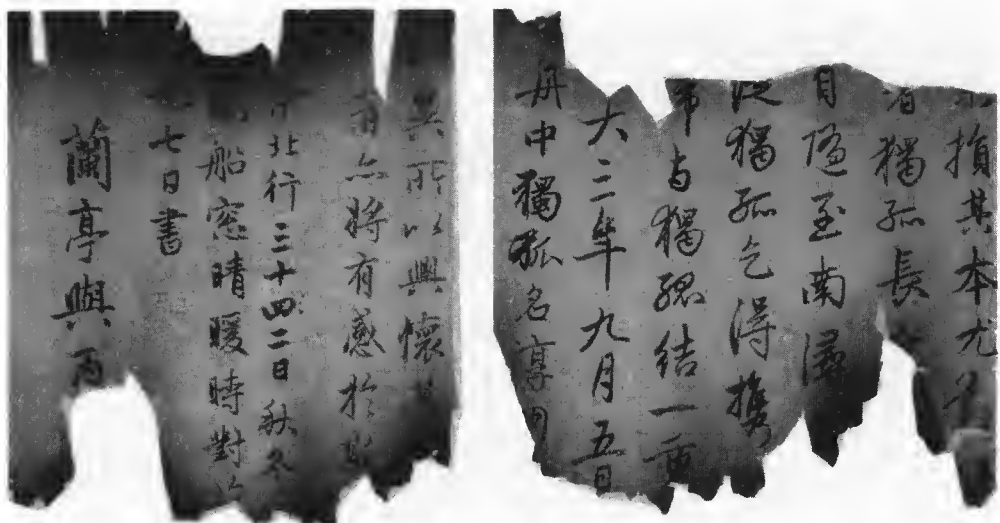 損其本尤
獨孤長
自隨至南潯
從獨孤乞得攜
帝与獨孤結一重
大三年九月五日
舟中獨孤名淳朋
異所以興懷
亦將有感於斯
北行三十四二日秋冬
船窓晴暖時對
七日書
蘭亭與丙